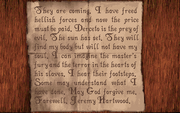 They are coming, I have freed
hellish forces and now the price
must be paid, Derceto is the prey of
evil, The sun has set, They will
find my body but will not have my
soul, I can imagine the master's
fury and the terror in the hearts of
his slaves, I hear their footsteps,
Some may understand what I
have done, May God forgive me,
Farewell, Jeremy Hartwood,